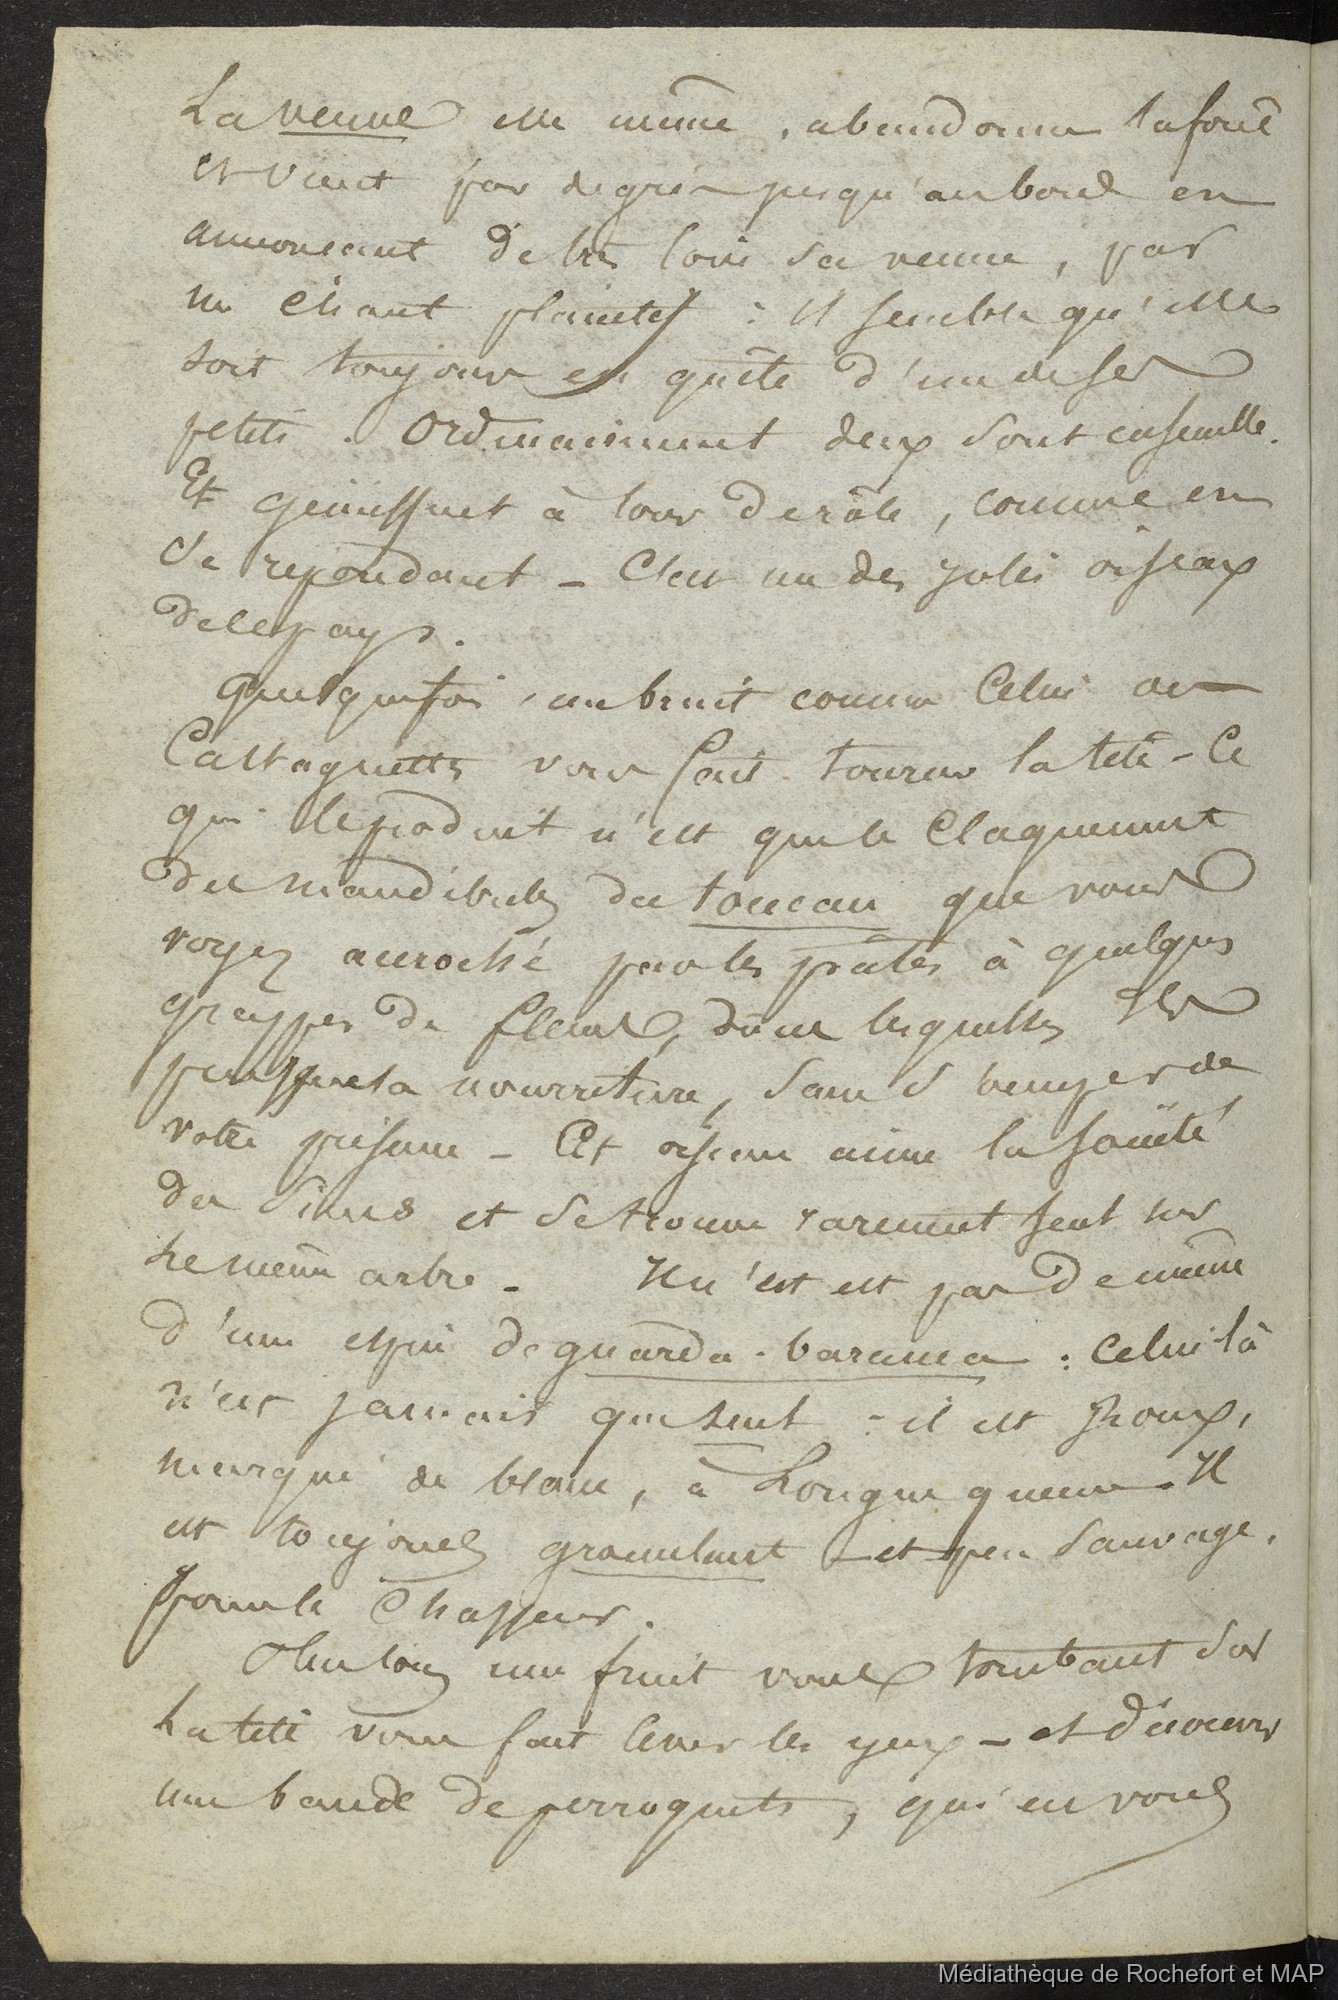 La veuve elle même, abandonne la forêt
et vient par degrés jusqu'au bord en
annoncant de très loin sa venue, par
un chant plaintif : il semble qu'elle
soit toujours en quête d'un de ses
petits. Ordinairement deux sont ensemble.
Et gémissent à tour de rôle, comme en
se repondant - C'est un des jolis oiseaux
de le pays.
Quelquefois, un bruit comme celui de
Castagnettes vous fait tourner la tête - Ce
qui le produit n'est que le claquement
des mandibules du toucan que vous
voyez accroché par les pattes à quelques
grappes de fleurs, dans lesquelles il
puise sa nourriture, sans s'
votre présence - Cet oiseau aime la société
des siens et se trouve rarement seul sur
le même arbre - Il n'est est pas de même
d'une espèce de guarda-baranca : celui là
n'est jamais que seul : il est roux,
marqué de blanc, à longue queue - Il
est toujours grommelant - et peu sauvage.
pour le chasseur.
Plus loin un fruit vous tombant sur
la tête vous fait lever les yeux - et découvrir
une bande de perroquets, qui en vous
Médiathèque de Rochefort et MAP